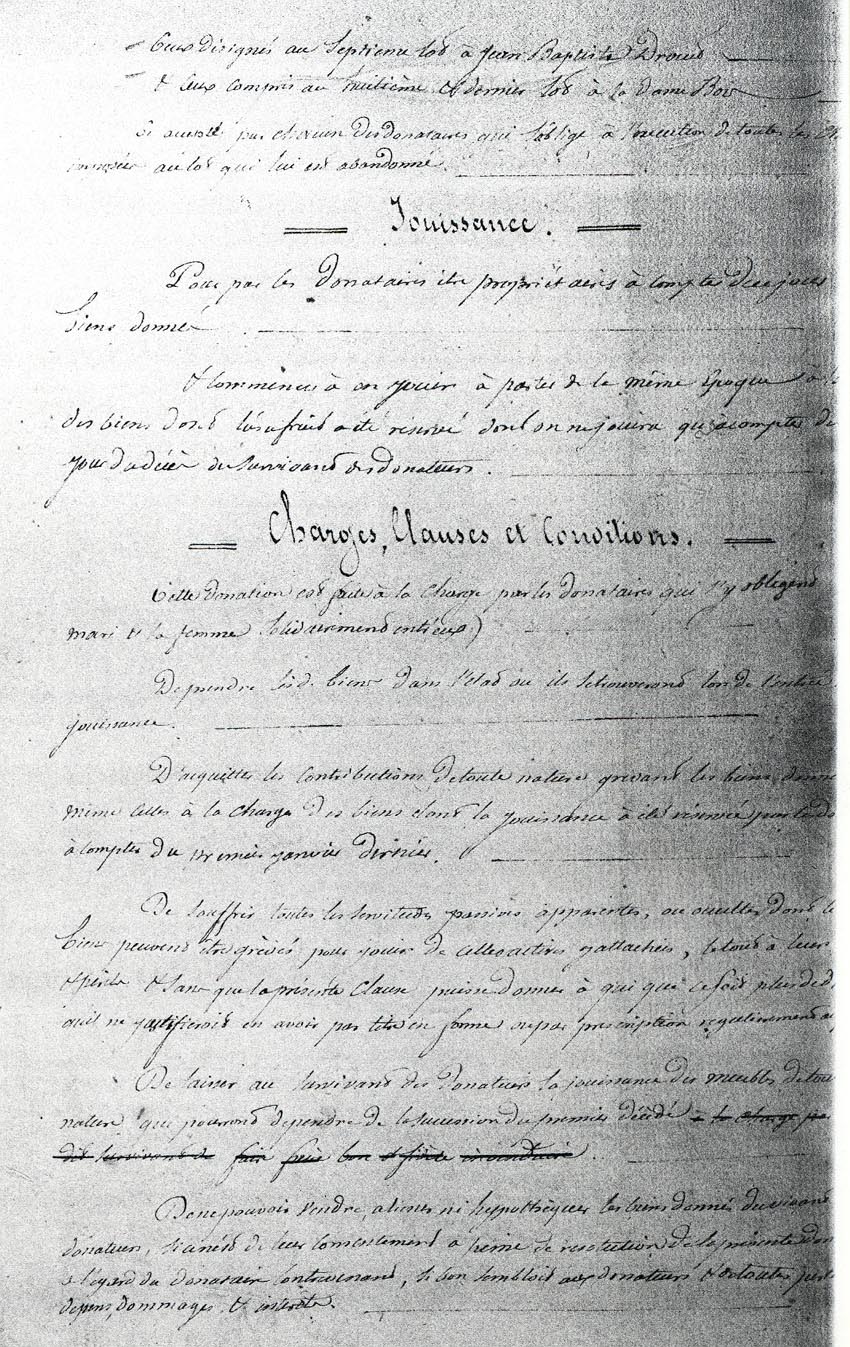 Ceux désignés au Septieme lot à Jean Baptiste Drouet
& Ceux compris au huitième & dernier lot à la Dame Bois
Ce accepté par chacun des donataires qui s'oblige à l'execution de toutes les
imposées au lot qui lui est abandonné.
Jouissance.
Pour par les Donataires être propriétaires à compter de ce jour
biens donnés
& Commencer à en jouir à partir de la même époque à
des biens dont l'usufruit a été réservé dont on ne jouira qu'à compter du
jour du décès du Survivant des donateurs.
Charges, Clauses et Conditions.
Cette Donation est faite à la Charge par les donataires qui s'y obligent
mari & la femme solidairement entr'eux)
De prendre lesd. biens dans l'état où ils se trouveront lors de l'entrée
jouissance.
D'acquitter les Contributions de toute nature grevant les biens donnés
même celles à la charge des biens dont la jouissance a été réservée par les
à compter du premier janvier dernier.
De Souffrir toutes les servitudes passives apparentes, ou occultes dont le
biens peuvent être grévés pour jouir de celles actives y attachées, le tout à leurs
& perils & sans que la présente Clause puisse donner à qui que ce soit plus de d
qu'il ne justifieroit en avoir par titre en forme ou par prescription regulierement
De laisser au survivant des donateurs la jouissance des meubles de tou
nature qui pourront dependre de la succession du premier décédé à la charge par
dit survivant de faire faire bon & fidele inventaire.
De ne pouvoir Vendre, aliener ni hypothéquer les biens donnés du vivant
donateurs, si ce n'est de leur Consentement à peine de resolution de la présente don
à l'égard du Donataire Contrevenant, si bon sembloit aux donateurs & de toutes
depens, dommages & interêts.